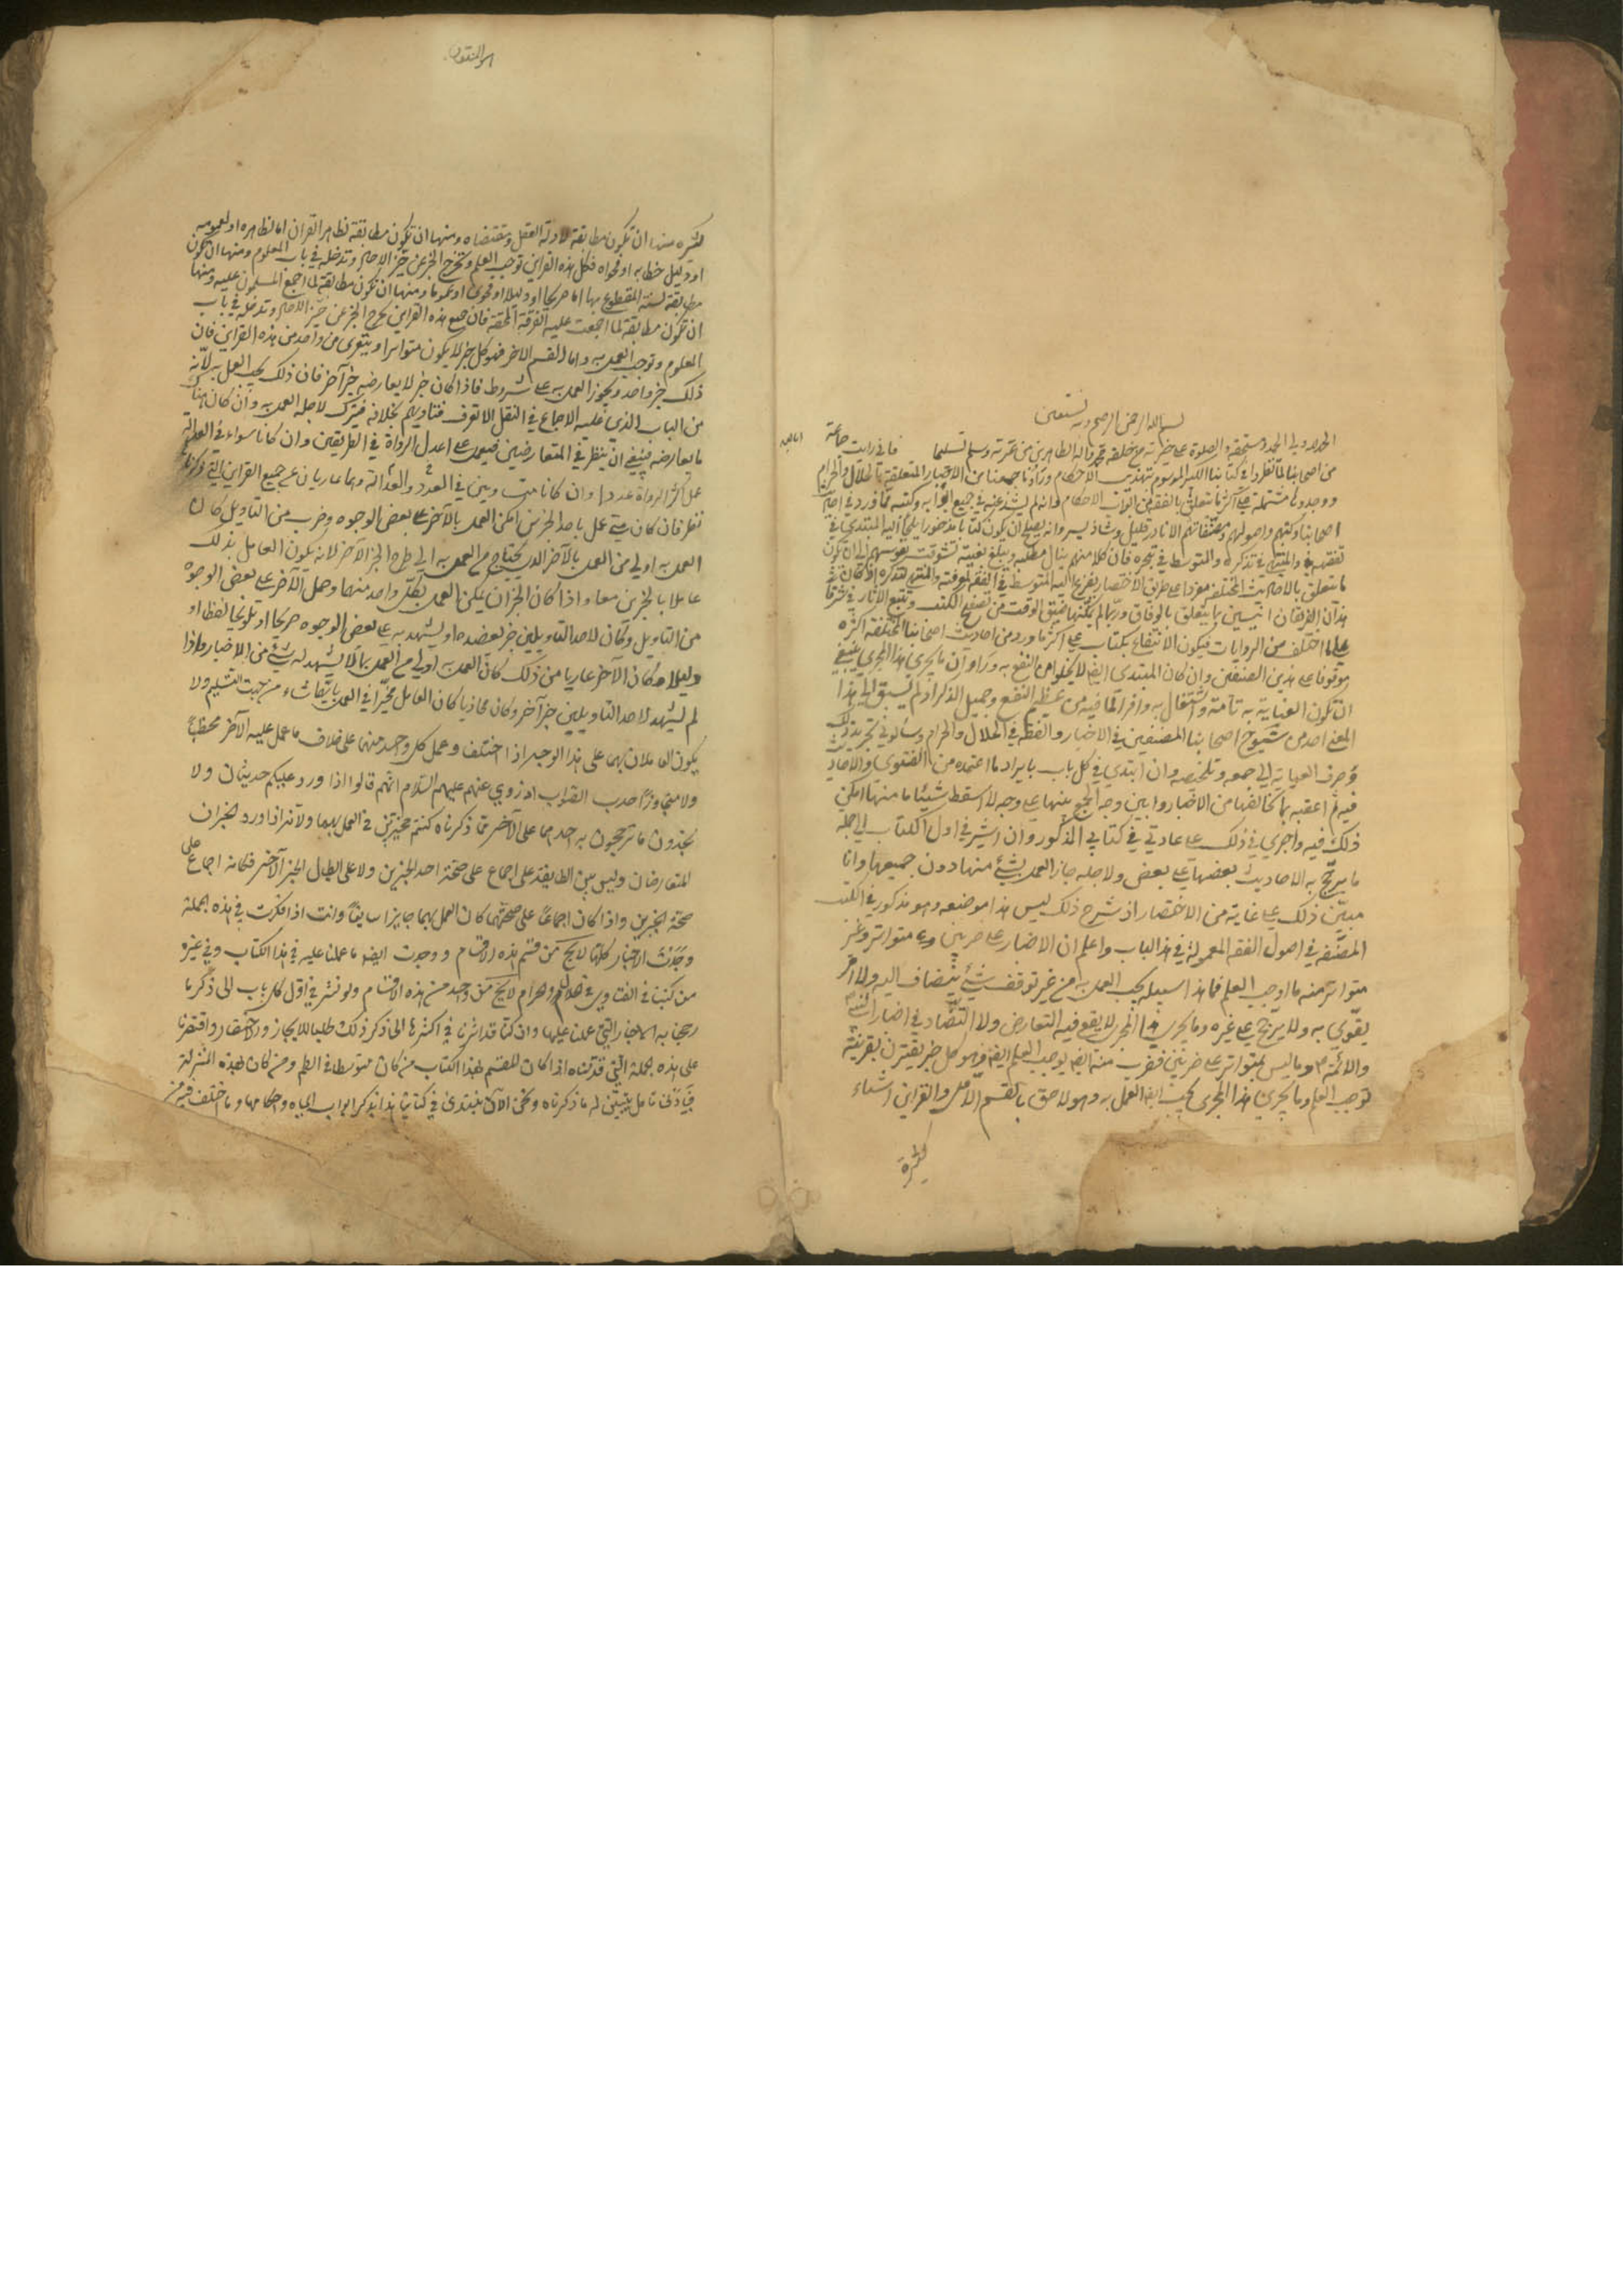 بسم الله الرحمن الرحيم وبه نستعين
الحمد لله ولي الحمد ومستحقه والصلوة على خيرته من خلقه محمد واله الطاهرين من عترته وسلم تسليما فاني رايت جماعة
اما بعد
من اصحابنا لما نظروا في كتابنا الكبير الموسوم بتهذيب الاحكام وراوا ما جمعنا من الاخبار المتعلقة بالحلال والحرام
ووجدوها مشتملة على اكثر ما يتعلق بالفقه من ابواب الاحكام وانه لم يشذ عنه في جميع ابوابه وكتبه مما ورد في احاديث
اصحابنا وكتبهم واصولهم ومصنفاتهم الا نادر قليل وشاذ يسير وانه يصلح ان يكون كتابا مذخورا يلجأ اليه المبتدي في
تفقهه والمنتهي في تذكره والمتوسط في تبحره فان كلا منهم ينال مطلبه ويبلغ بغيته تشوقت نفوسهم الى ان يكون
ما يتعلق بالاحاديث المختلفة مفردا على طريق الاختصار يفزع اليه المتوسط في الفقه لمعرفته والمنتهي لتذكره اذ كان
هذان الفريقان انيسين بما يتعلق بالوفاق وربما لم يمكنهما ضيق الوقت من تصفح الكتب وتتبع الاثار فيشرفا
على ما اختلف من الروايات فيكون الانتفاع بكتاب يشتمل على اكثر ما ورد من احاديث اصحابنا المختلفة اكثره
موقوفا على هذين الصنفين وان كان المبتدي ايضا لا يخلو من النفع به وراوا ان ما يجري هذا المجرى ينبغي
ان تكون العناية به تامة والاشتغال به وافرا لما فيه من عظيم النفع وجميل الذكر اذ لم يسبق الى هذا
المعنى احد من شيوخ اصحابنا المصنفين في الاخبار والفقه في الحلال والحرام وسألوني تجريد ذلك
وصرف العناية الى جمعه وتلخيصه وان ابتدي في كل باب بايراد ما اعتمده من الفتوى والاحاديث
فيه ثم اعقبه بما يخالفها من الاخبار وابين وجه الجمع بينها على وجه لا اسقط شيئا منها ما امكن
ذلك فيه واجري في ذلك على عادتي في كتابي المذكور وان اشير في اول الكتاب الى جملة
ما يرجح به الاحاديث بعضها على بعض ولاجله جاز العمل بشئ منها دون جميعها وانا
مبين ذلك على غاية من الاختصار اذ شرح ذلك ليس هذا موضعه وهو مذكور في الكتب
المصنفة في اصول الفقه المعمولة في هذا الباب واعلم ان الاخبار على ضربين متواتر وغير
متواتر منه ما اوجب العلم فما هذا سبيله يجب العمل به من غير توقف شئ ينضاف اليه ولا امر
يقوى به ولا يرجح على غيره وما يجري هذا المجرى لا يقع فيه التعارض ولا التضاد في اخبار النبي
والائمة وما ليس بمتواتر على ضربين فضرب منه ايضا يوجب العلم ايضا وهو كل خبر يقترن بقرينة
توجب العلم وما يجري هذا المجرى يجب ايضا العمل به وهو لاحق بالقسم الاول والقراين اشياء
كثيرة
كثيره منها ان تكون مطابقة لادلة العقل ومقتضاه ومنها ان تكون مطابقة لظاهر القران اما لظاهره او لعمومه
او دليل خطابه او فحواه فكل هذه القراين توجب العلم وتخرج الخبر عن حيز الاحاد وتدخله في باب المعلوم ومنها ان تكون
مطابقة لسنة المقطوع بها اما صريحا او دليلا او فحوى او عموما ومنها ان تكون مطابقة لما اجمع المسلمون عليه ومنها
ان تكون مطابقة لما اجمعت عليه الفرقة المحقة فان جميع هذه القراين تخرج الخبر عن حيز الاحاد وتدخله في باب
المعلوم وتوجب العمل به واما القسم الاخر فهو كل خبر لا يكون متواترا ويتعرى من واحد من هذه القراين فان
ذلك خبر واحد ويجوز العمل به على شروط فاذا كان خبر لا يعارضه خبر آخر فان ذلك يجب العمل به لانه
من الباب الذي عليه الاجماع في النقل الا تعرف فتاويهم بخلافه فيترك لاجله العمل به وان كان هناك
ما يعارضه فينبغي ان ينظر في المتعارضين فيعمل على اعدل الرواة في الطريقين وان كانا سواء في العدالة
عمل اكثر الرواة عددا وان كانا متساويين في العدد والعدالة وهما عاريان عن جميع القراين التي ذكرناها
نظر فان كان متى عمل باحد الخبرين امكن العمل بالآخر على بعض الوجوه وضرب من التاويل كان
العمل به اولى من العمل بالآخر الذي يحتاج مع العمل به الى طرح الخبر الآخر لانه يكون العامل بذلك
عاملا بالخبرين معا واذا كان الخبران يمكن العمل بكل واحد منهما وحمل الآخر على بعض الوجوه
من التاويل وكان لاحد التاويلين خبر يعضده او يشهد به على بعض الوجوه صريحا او تلويحا لفظا او
دليلا وكان الآخر عاريا من ذلك كان العمل به اولى من العمل بما لا يشهد له شئ من الاخبار واذا
لم يشهد لاحد التاويلين خبر آخر وكان محاذيا كان العامل مخيرا في العمل بايهما شاء من جهة التسليم ولا
يكون العاملان بهما على هذا الوجه اذا اختلفا وعمل كل واحد منهما على خلاف ما عمل عليه الآخر مخطئا
ولا متجاوزا حد الصواب اذ روي عنهم عليهم السلام انهم قالوا اذا ورد عليكم حديثان ولا
تجدون ما ترجحون به احدهما على الآخر مما ذكرناه كنتم مخيرين في العمل بهما ولانه اذا ورد الخبران
المتعارضان وليس بين الطايفة على اجماع على صحة احد الخبرين ولا على ابطال الخبر الآخر فكانه اجماع على
صحة الخبرين واذا كان اجماعا على صحتهما كان العمل بهما جايزا سايغا وانت اذا فكرت في هذه الجملة
وجدت الاخبار كلها لا تخ من قسم هذه الاقسام ووجدت ايضا ما عملنا عليه في هذا الكتاب وفي غيره
من كتبنا في الفتاوى في الحلال والحرام لا يخ من واحد من هذه الاقسام ولو نشر في اول كل باب الى ذكر ما
رجحنا به الاخبار التي عملنا عليها وان كنا قد اشرنا في اكثرها الى ذكر ذلك طلبا للايجاز والاختصار واقتصرنا
على هذه الجملة التي قدمناه اذا كان المقصد بهذا الكتاب من كان متوسطا في العلم ومن كان بهذه المنزلة
فبادنى تامل يتبين له ما ذكرناه ونحن الآن نبتدئ في كتابنا هذا بذكر ابواب المياه واحكامها وما اختلف فيه من